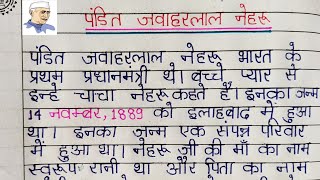 पंडित जवाहरलाल नेहरू
पंडित जवाहरलाल नेहरू भारत के
प्रथम प्रधानमंत्री थे। बच्चे प्यार से
इन्हे चाचा नेहरू कहते हैं। इनका जन्म
14 नवम्बर, 1889 को इलाहबाद में हुआ
था। इनका जन्म एक संपन्न परिवार
में हुआ था। नेहरू जी की माँ का नाम
स्वरूप रानी था और पिता का नाम